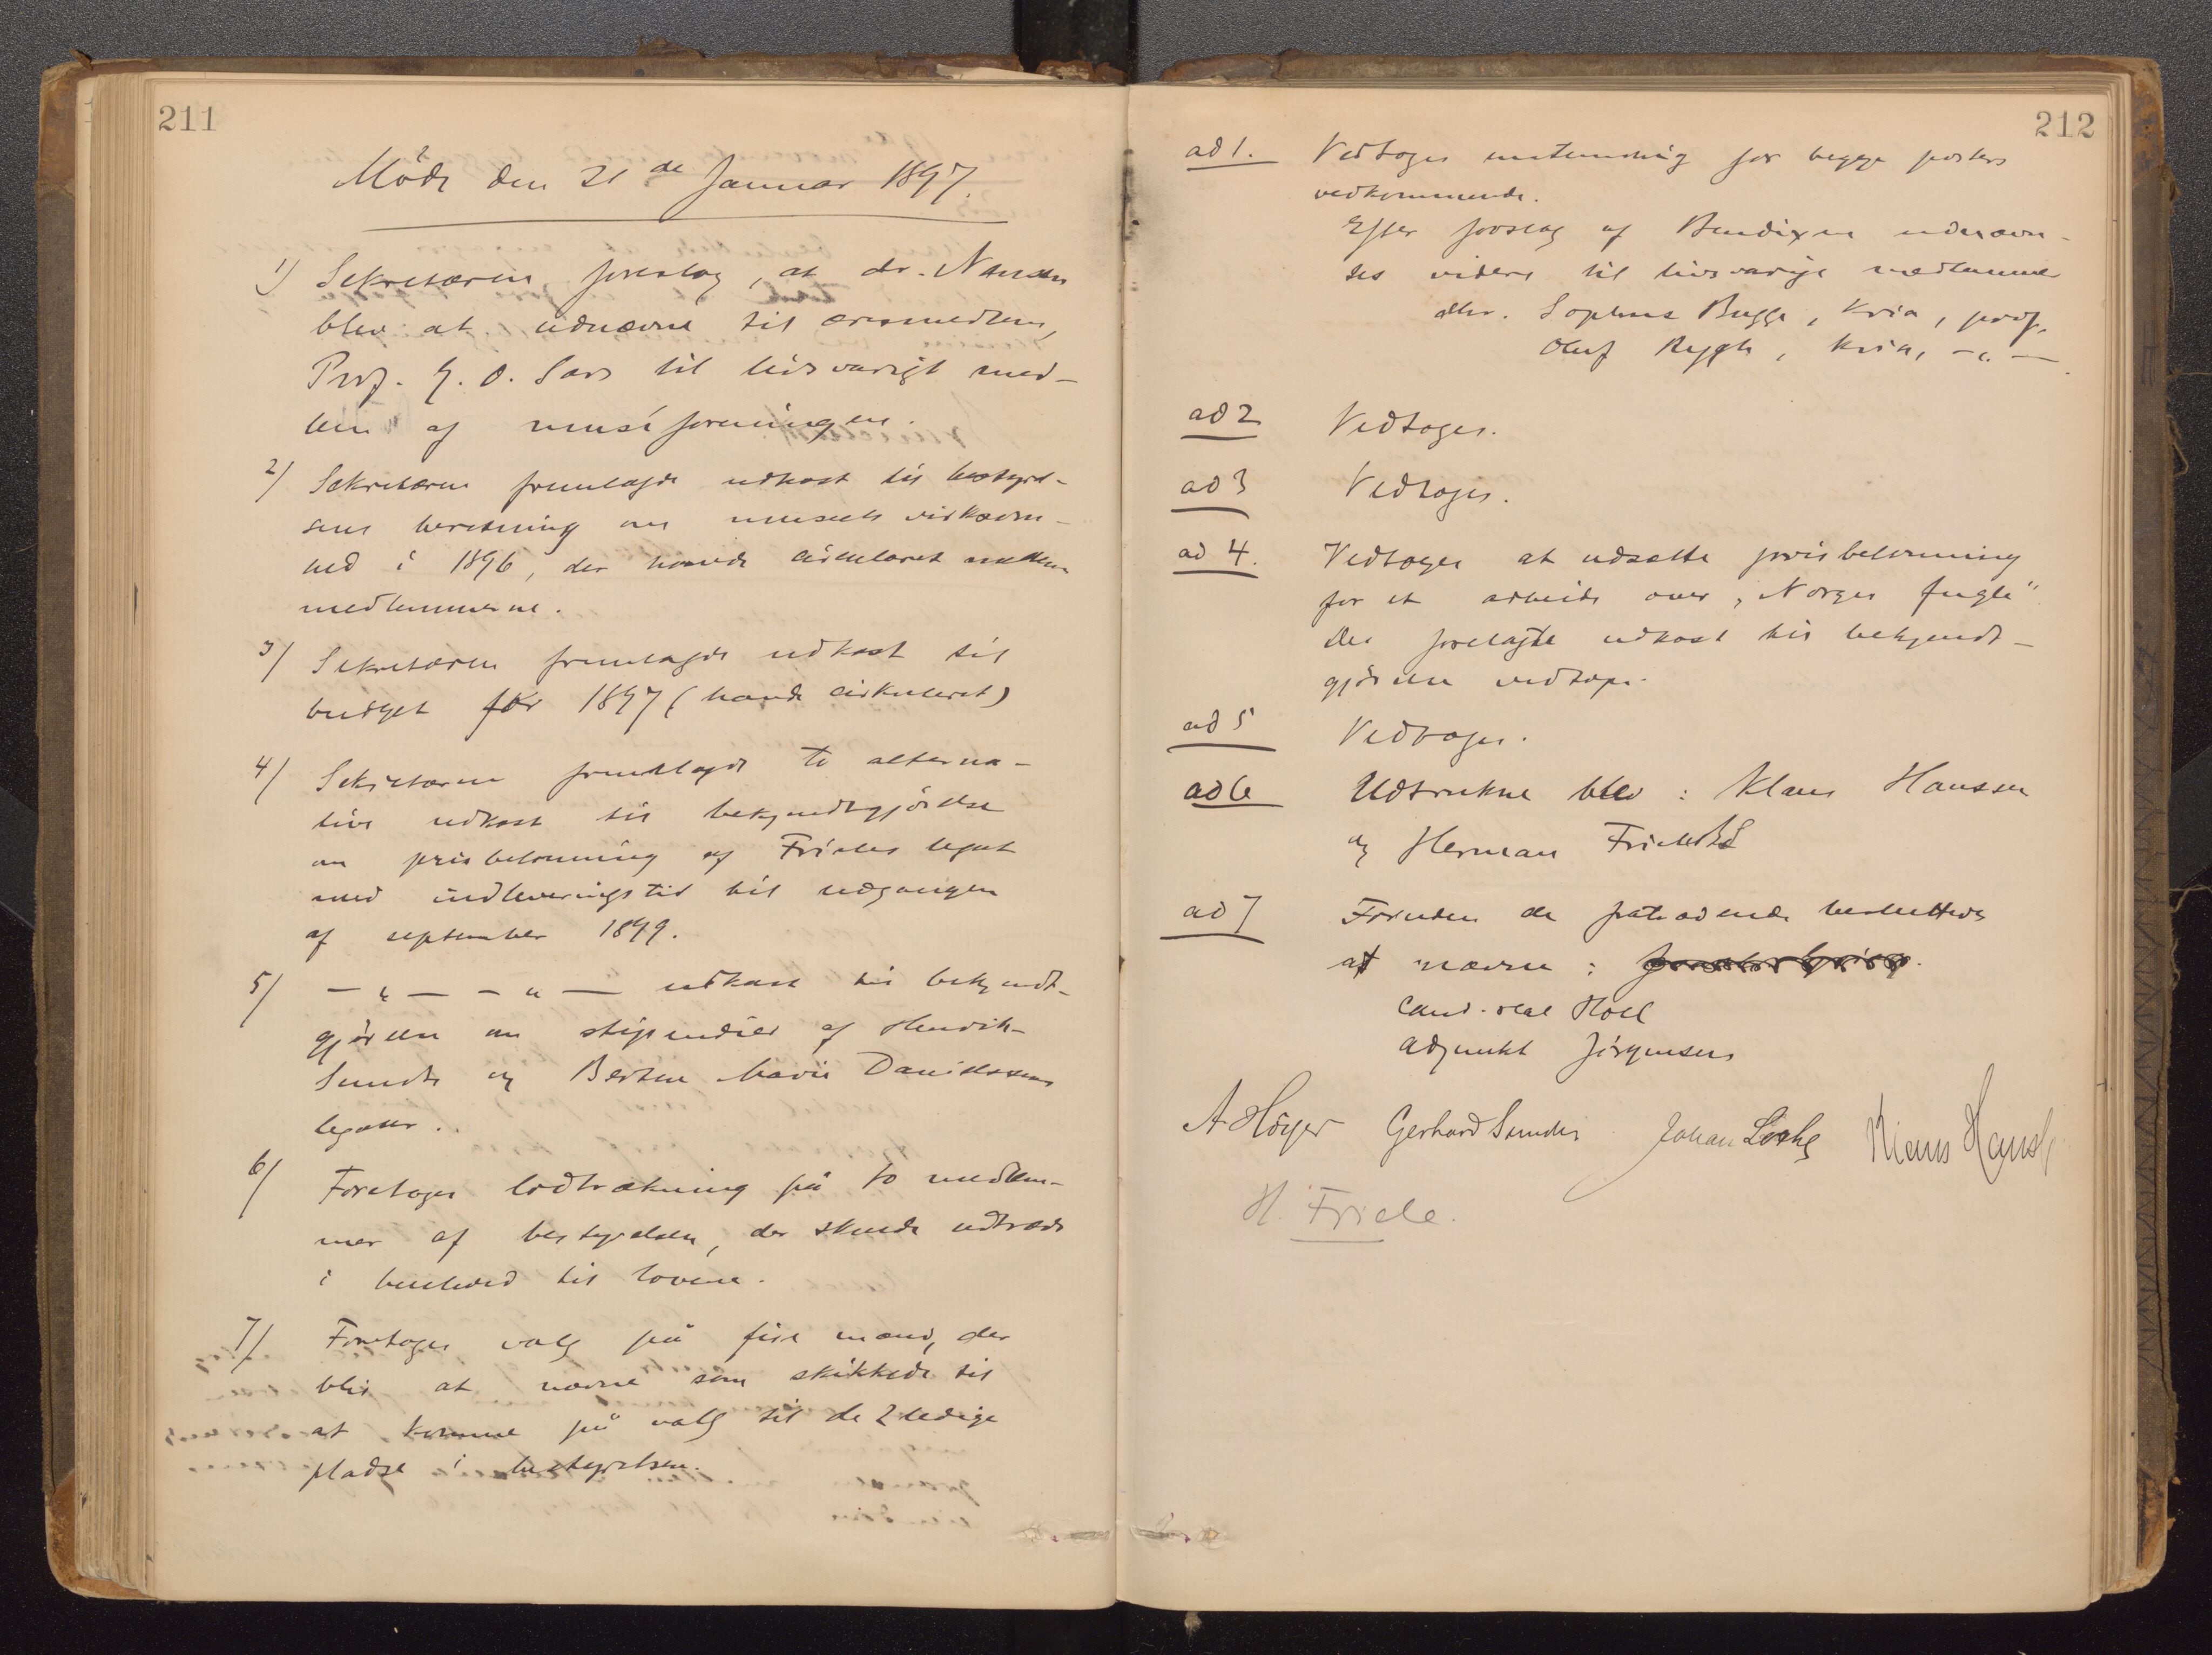 211
Möde den 21de Januar 1897.
1) Sekretæren foreslog, at dr. Nansen
blev at udnævne til æresmedlem,
Prof. G. O. Sars til livsvarigt med-
lem af museiforeningen.
2) Sekretæren fremlagde udkast til bestyrel-
sens beretning om museets virksom-
hed i 1896, der havde cirkuleret mellem
medlemmerne.
3) Sekretæren fremlagde udkast til
budget for 1897 (havde cirkuleret)
4) Sekretæren fremlagde to alterna-
tive udkast til bekjendtgjörelse
om prisbelønning af Frieles legat
med indleveringstid til udgangen
af september 1899.
5) — „ — — „ — udkast til bekjendt-
gjörelse om stipendier af Henrik
Sundts og Berthe Marie Danielssens
legater.
6) Foretoges lodtrækning på to medlem-
mer af bestyrelsen, der skulde udtræde
i henhold til lovene.
7) Foretoges valg på fire mænd, der
blir at nævne som skikkede til
at komme på valg til de 2 ledige
pladse i bestyrelsen.
212
ad 1. Vedtoges enstemmig for begge posters
vedkommende.
Efter forslag af Bendixen udnævn-
tes videre til livsvarige medlemmer
dhrr. Sophus Bugge, Kria, prof.
Oluf Rygh, Kria, — „ —
ad 2 Vedtoges.
ad 3 Vedtoges.
ad 4. Vedtoges at udsætte prisbelønning
for et arbeide over „Norges fugle"
Det forelagte udkast til bekjendt-
gjörelse vedtoges.
ad 5 Vedtoges.
ad 6 Udtrukne blev: Klaus Hanssen
og Herman Friele
ad 7 Foruden de fratrædende besluttedes
at nævne:
Cand. real Holl
Adjunkt Jörgensen
A Höyer Gerhard Sundts Johan Lothe Klaus Hanssen
H. Friele.